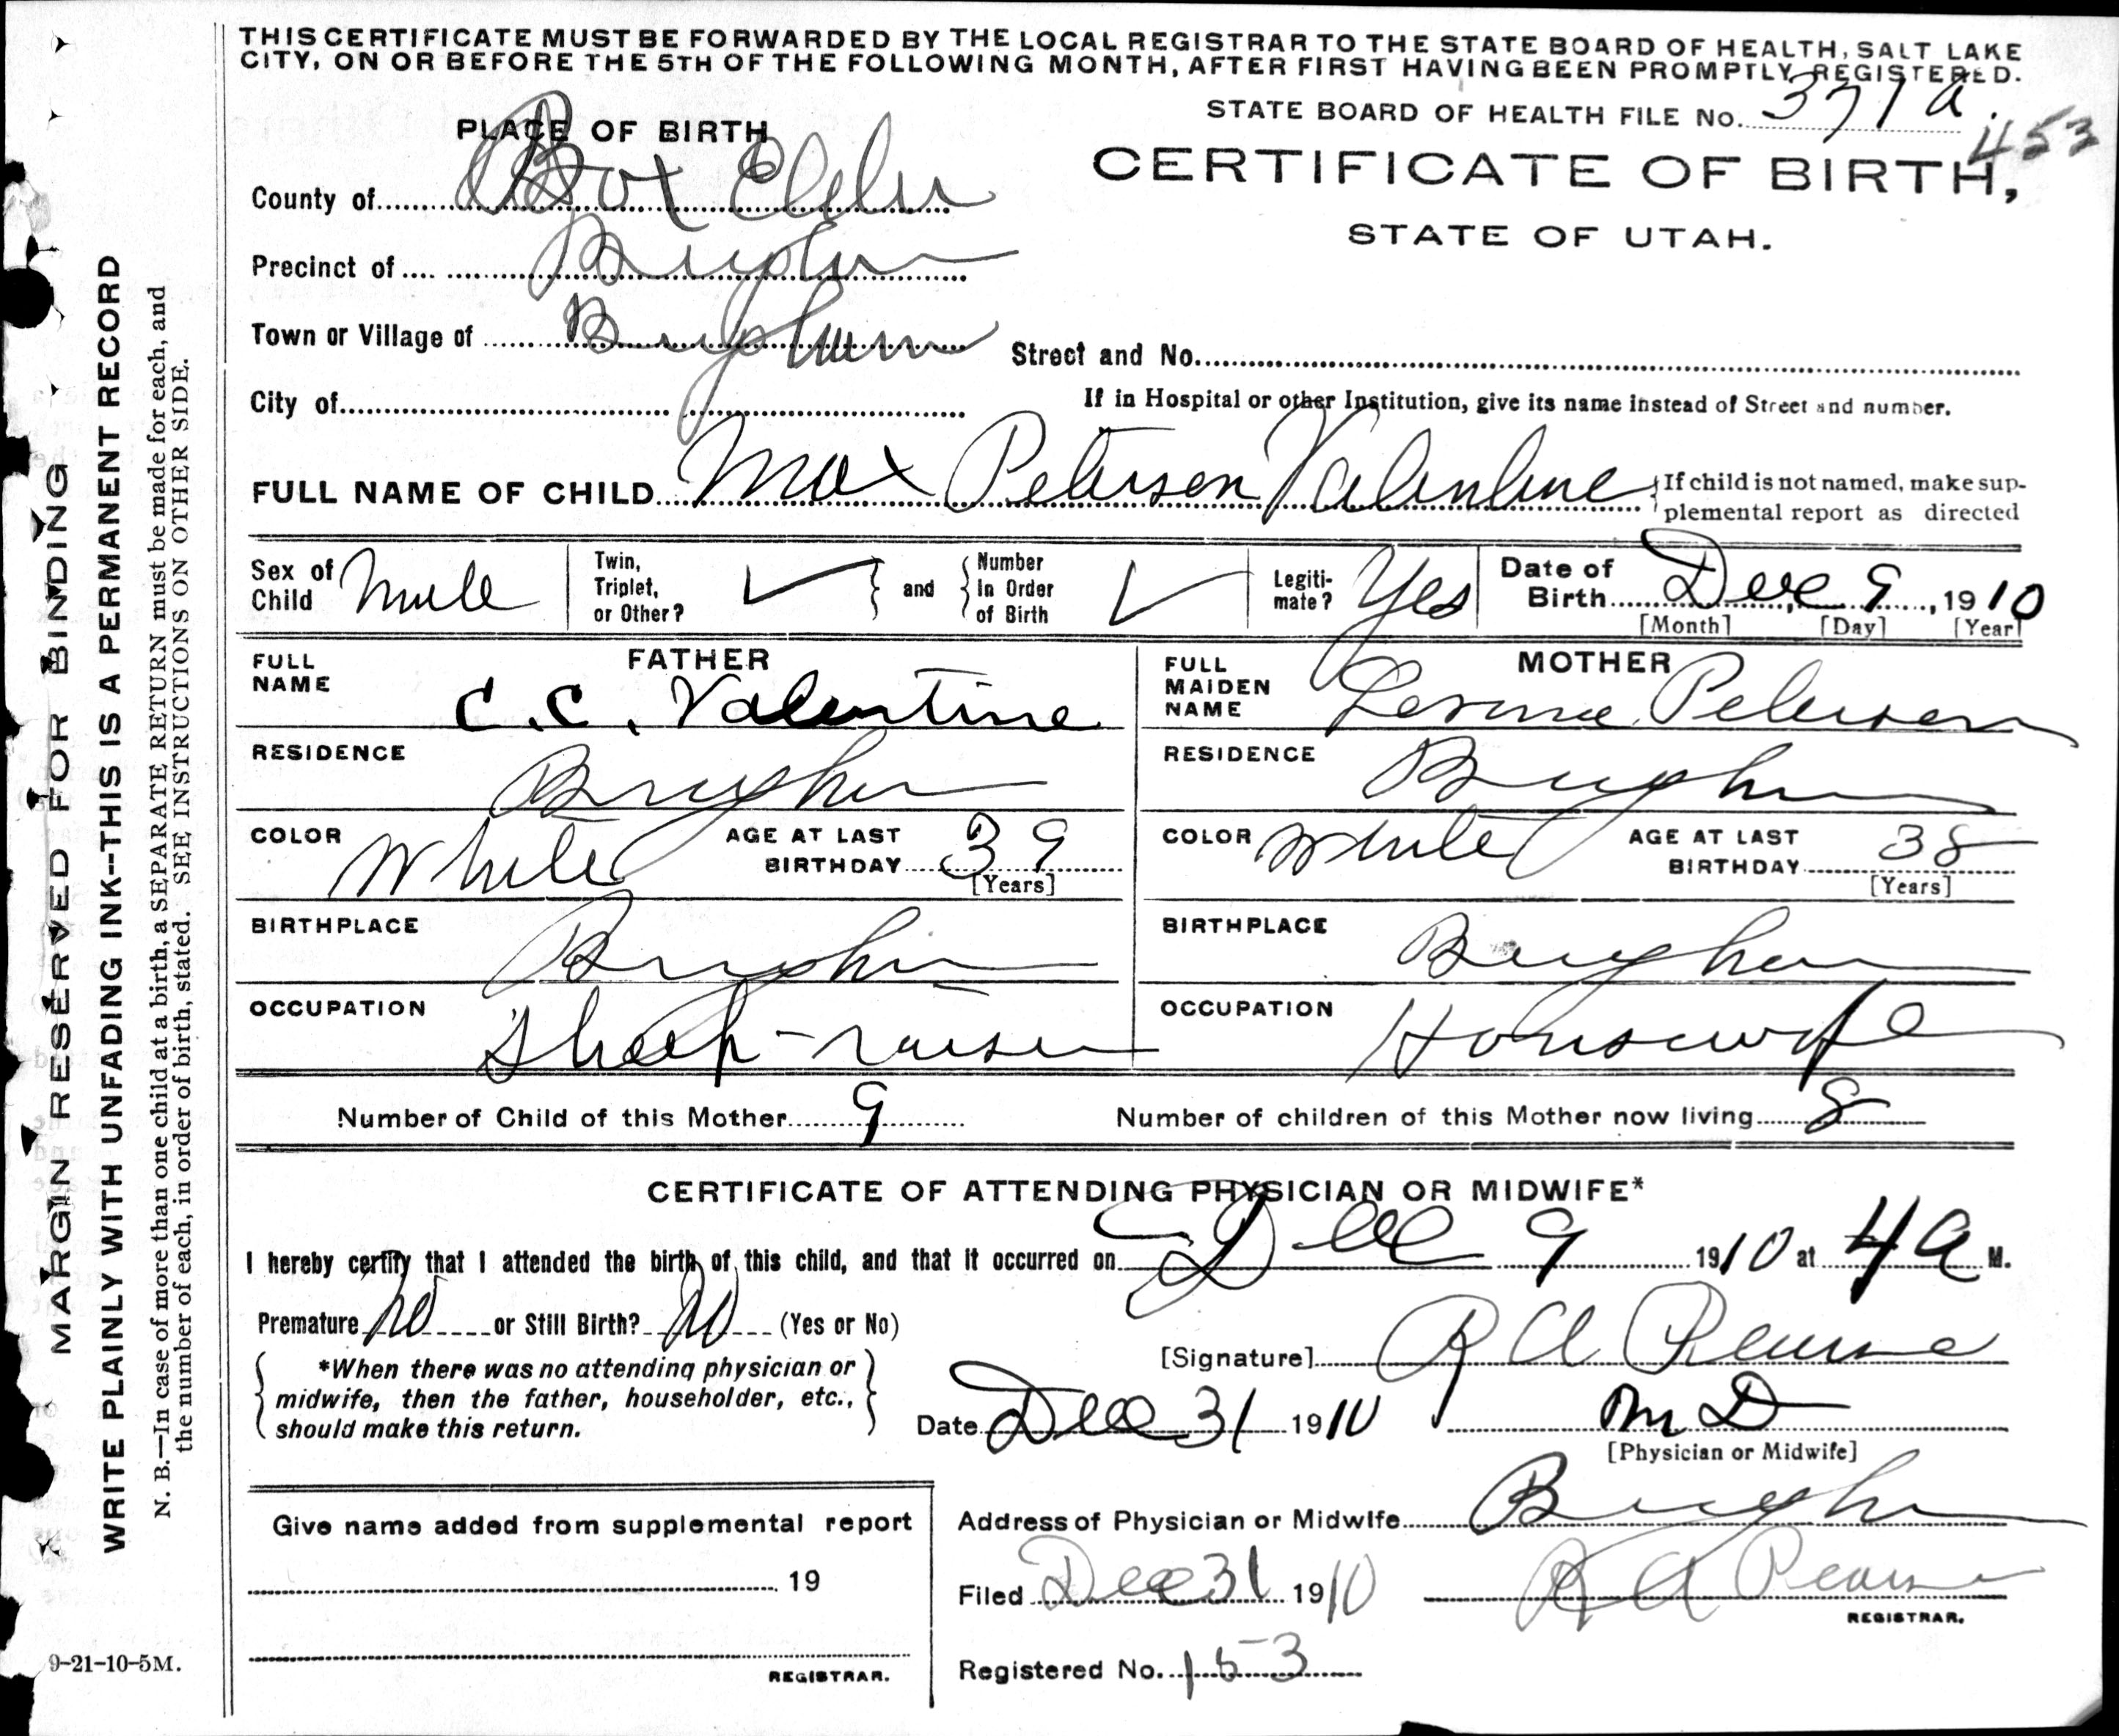 THIS CERTIFICATE MUST BE FORWARDED BY THE LOCAL REGISTRAR TO THE STATE BOARD OF HEALTH, SALT LAKE
CITY, ON OR BEFORE THE 5TH OF THE FOLLOWING MONTH, AFTER FIRST HAVING BEEN PROMPTLY REGISTERED.
STATE BOARD OF HEALTH FILE No. 371 a.
453
PLACE OF BIRTH
CERTIFICATE OF BIRTH,
STATE OF UTAH.
County of Box Elder
Precinct of Brigham
Town or Village of Brigham
Street and No.
City of
If in Hospital or other Institution, give its name instead of Street and number.
FULL NAME OF CHILD Max Petersen Valentine
If child is not named, make sup-
plemental report as directed
Sex of Child Male
Twin, Triplet, or Other? ✓
and
Number in Order of Birth ✓
Legiti-mate? Yes
Date of Birth Dec 9, 1910
[Month] [Day] [Year]
FATHER
FULL NAME C. C. Valentine
MOTHER
FULL MAIDEN NAME Petersen
RESIDENCE Brigham
RESIDENCE Brigham
COLOR White AGE AT LAST BIRTHDAY 39 [Years]
COLOR White AGE AT LAST BIRTHDAY 38 [Years]
BIRTHPLACE Brigham
BIRTHPLACE Brigham
OCCUPATION Sheep-raiser
OCCUPATION Housewife
Number of Child of this Mother 9
Number of children of this Mother now living 8
CERTIFICATE OF ATTENDING PHYSICIAN OR MIDWIFE*
I hereby certify that I attended the birth of this child, and that it occurred on Dec 9 1910 at 4 a M.
Premature no or Still Birth? no (Yes or No)
[Signature] R A Pearse
*When there was no attending physician or
midwife, then the father, householder, etc.,
should make this return.
Date Dec 31 1910
M D
[Physician or Midwife]
Give name added from supplemental report
19
REGISTRAR.
Address of Physician or Midwife Brigham
Filed Dec 31 1910 R A Pearse
REGISTRAR.
Registered No. 153
MARGIN RESERVED FOR BINDING
WRITE PLAINLY WITH UNFADING INK--THIS IS A PERMANENT RECORD
N. B.—In case of more than one child at a birth, a SEPARATE RETURN must be made for each, and
the number of each, in order of birth, stated. SEE INSTRUCTIONS ON OTHER SIDE.
9-21-10-5M.